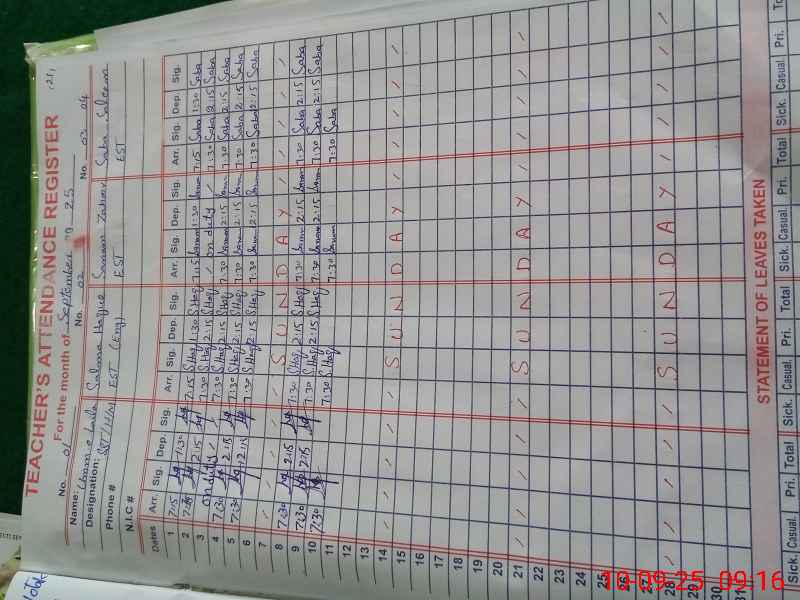 TEACHER'S ATTENDANCE REGISTER
For the month of September 20 25
No. 01 No. 02 No. 03 04
Name: Salma Haque Sanam Zahoor Saba Saleem
Designation: SST EST (Eng) EST EST
Phone #
N.I.C #
Dates Arr. Sig. Dep. Sig. Arr. Sig. Dep. Sig. Arr. Sig. Dep. Sig. Arr. Sig. Dep. Sig.
1 7:15 1:30 7:15 S.Haq 1:30 S.Haq 7:15 Sanam 1:30 Sanam 7:15 Saba 1:30 Saba
2 7:30 2:15 7:30 S.Haq 2:15 S.Haq on duty 7:30 Saba 2:15 Saba
3 on duty 7:30 S.Haq 2:15 S.Haq 7:30 Sanam 2:15 Sanam 7:30 Saba 2:15 Saba
4 7:30 2:15 7:30 S.Haq 2:15 S.Haq 7:30 Sanam 2:15 Sanam 7:30 Saba 2:15 Saba
5 7:30 12:15 7:30 S.Haq 2:15 S.Haq 7:30 Sanam 2:15 Sanam 7:30 Saba 2:15 Saba
6
7 SUNDAY
8 7:30 2:15 7:30 S.Haq 2:15 S.Haq 7:30 Sanam 2:15 Sanam 7:30 Saba 2:15 Saba
9 7:30 2:15 7:30 S.Haq 2:15 S.Haq 7:30 Sanam 2:15 Sanam 7:30 Saba 2:15 Saba
10 7:30 7:30 S.Haq 7:30 Sanam 7:30 Saba
11
12
13
14 SUNDAY
15
16
17
18
19
20
21 SUNDAY
22
23
24
25
26
27
28 SUNDAY
29
30
31
STATEMENT OF LEAVES TAKEN
Sick. Casual. Pri. Total Sick. Casual. Pri. Total Sick. Casual Pri. Total Sick. Casual Pri. Total
10-09-25 09:16